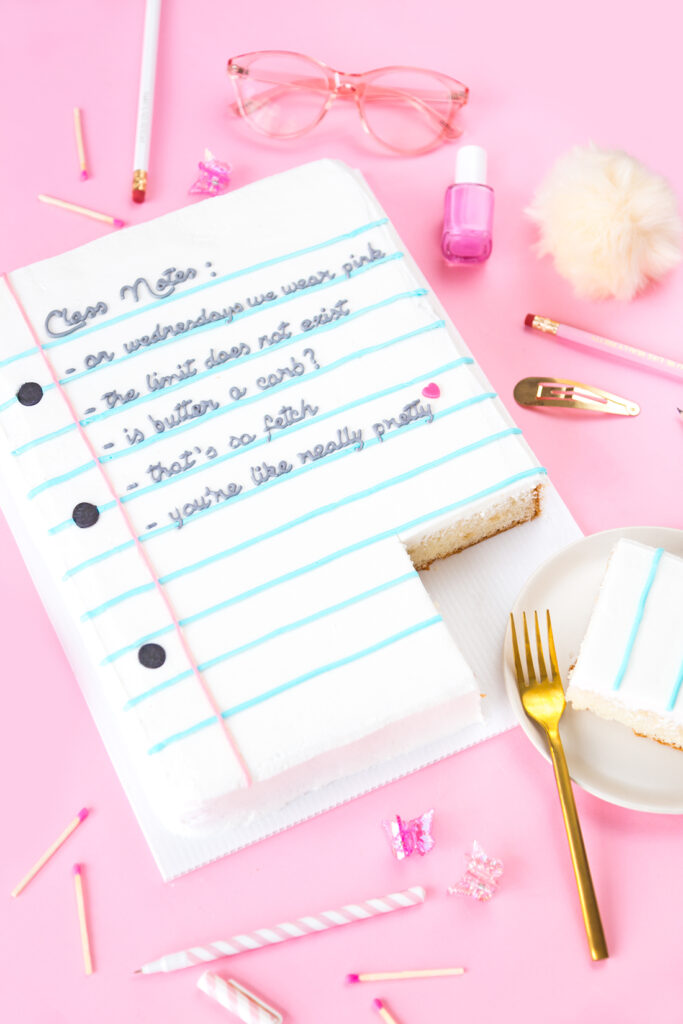 Class Notes:
- on wednesdays we wear pink
- the limit does not exist
- is butter a carb?
- that's so fetch
- you're like really pretty